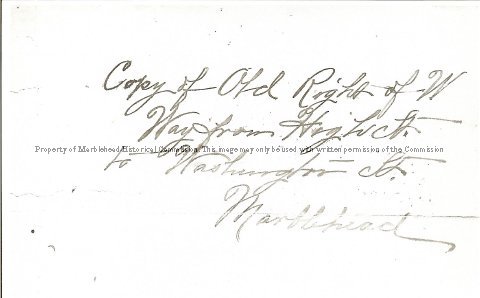 Copy of Old Right of W
Way from High St.
Property of Marblehead Historical Commission. This image may only be used with written permission of the Commission
to Washington St.
Marblehead